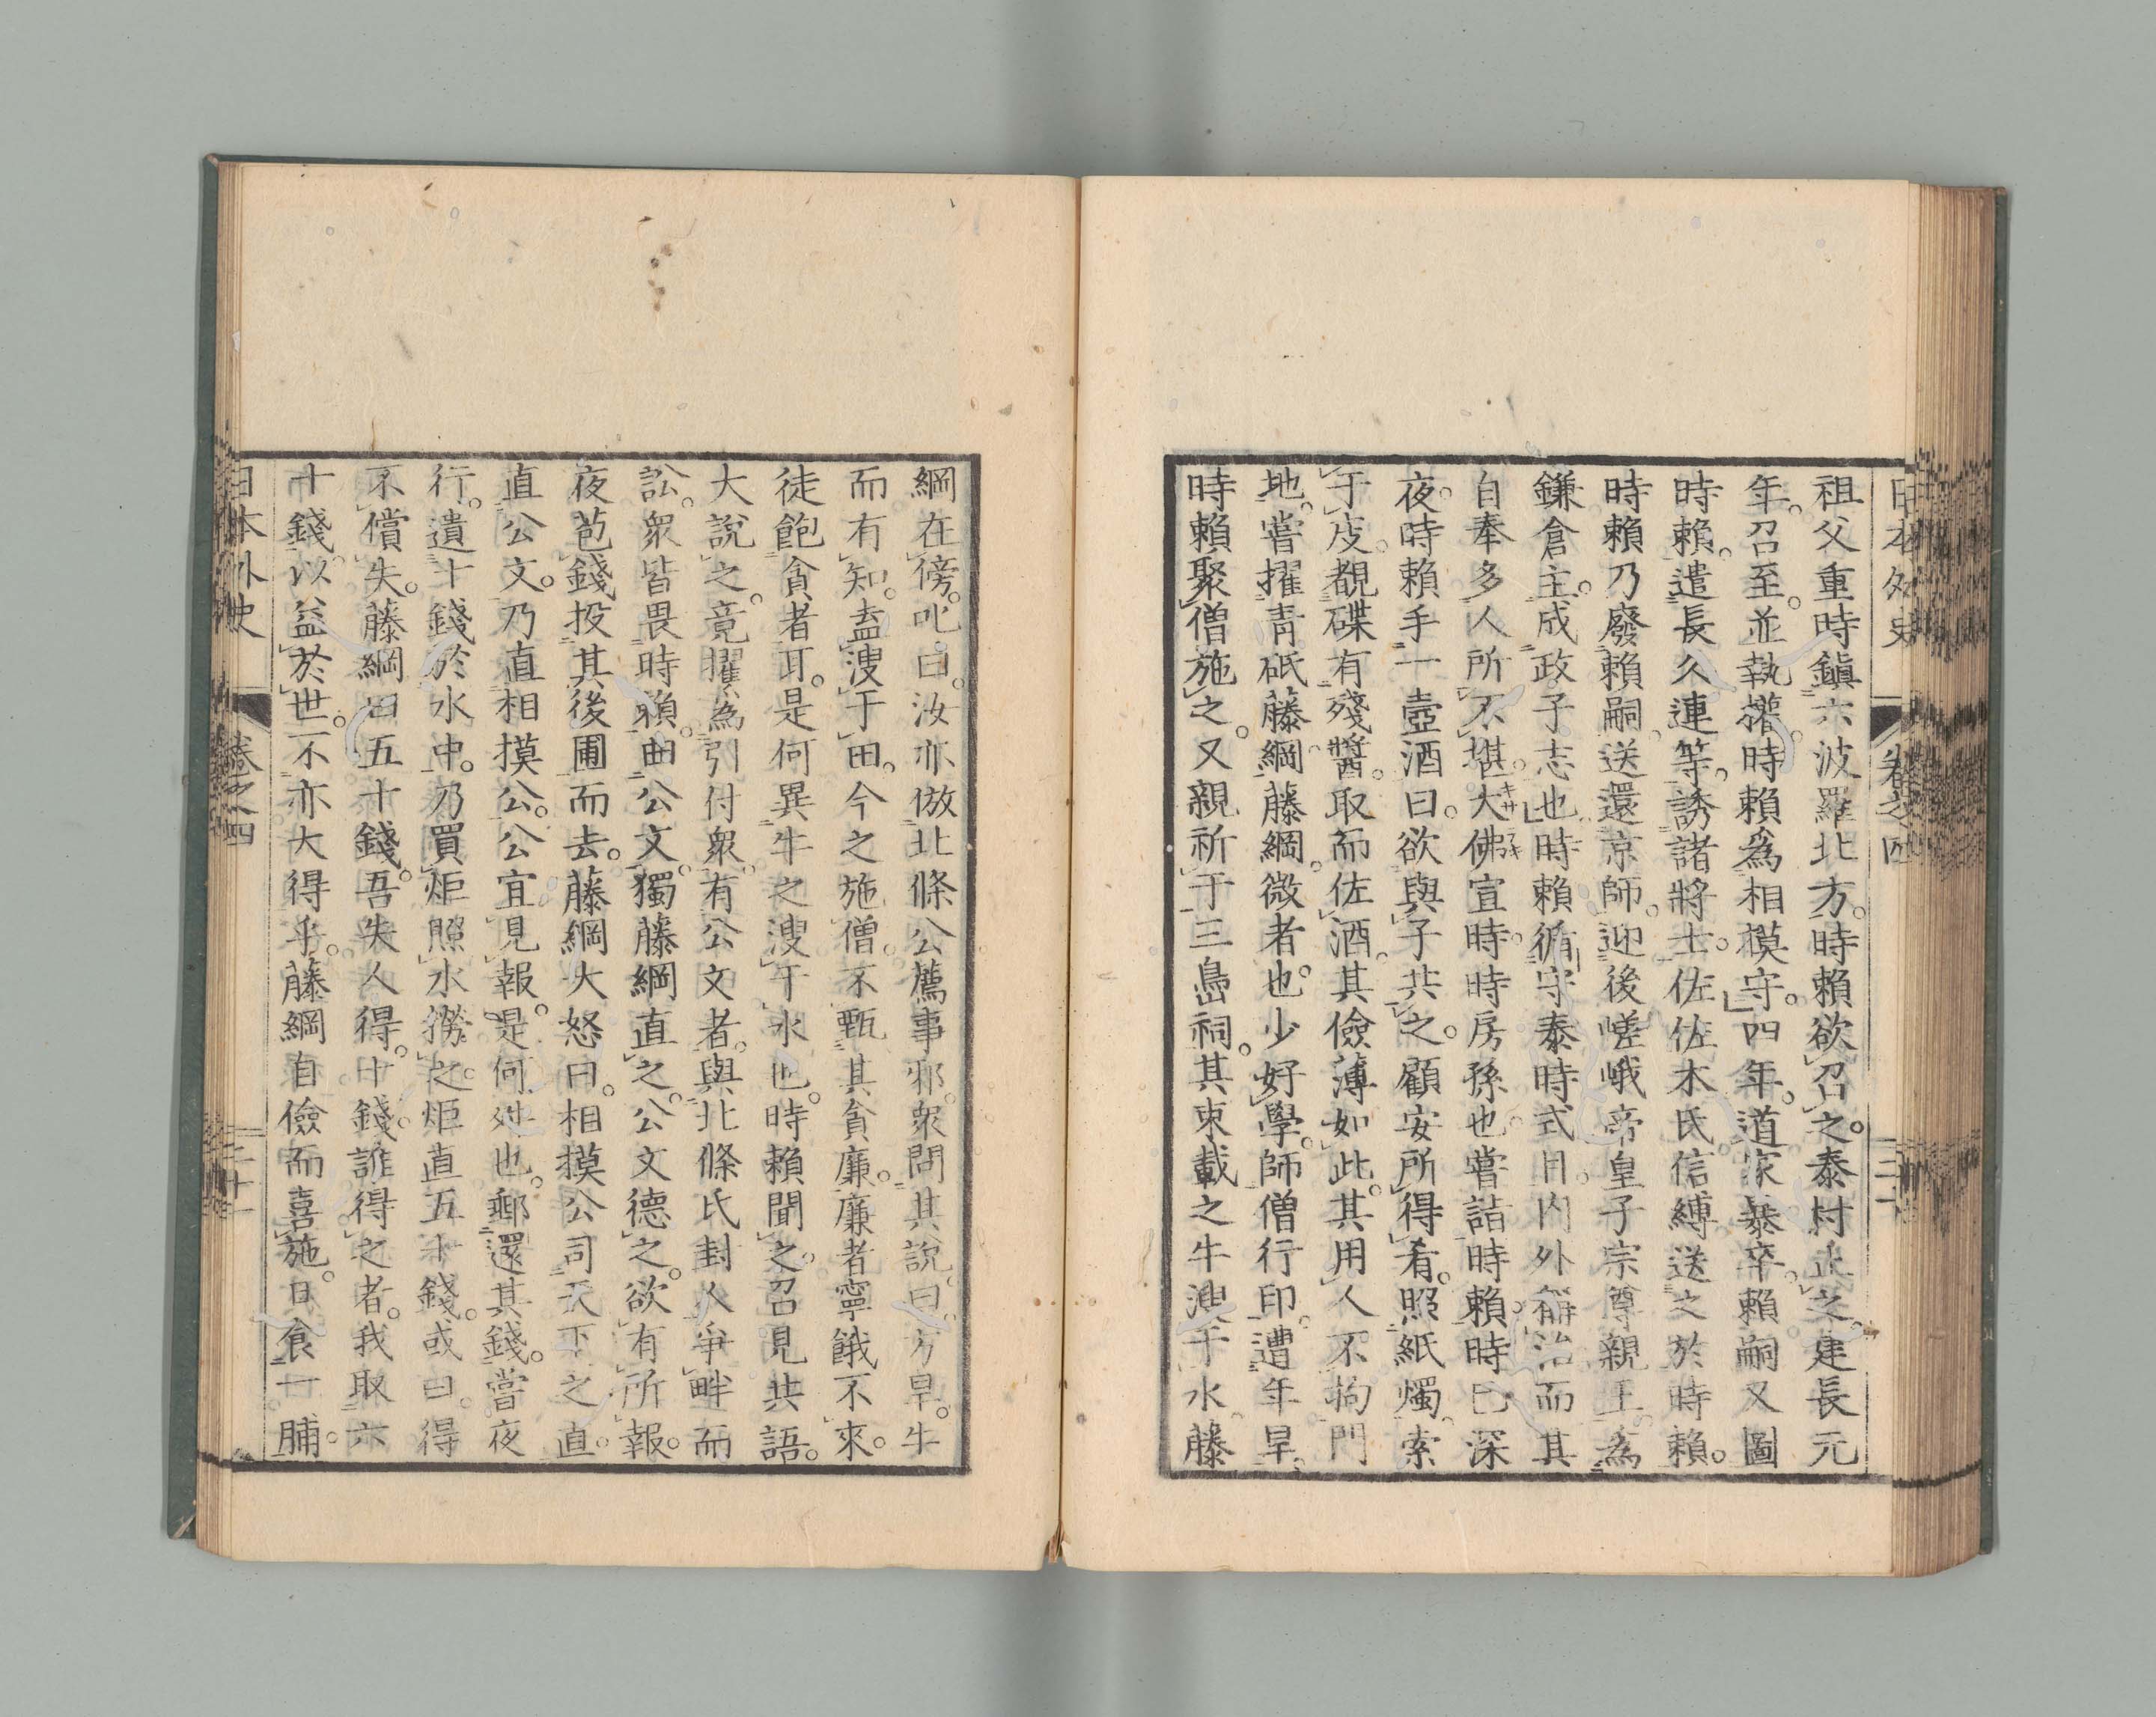 日本外史 卷之四
祖父重時鎭六波羅北方。時賴欲召之。泰村止之。建長元
年。召至。並執權。時賴爲相摸守。四年。道家暴卒。賴嗣又圖
時賴。遣長久連等。誘諸將士。佐佐木氏信縛送之於時賴。
時賴乃廢賴嗣。送還京師。迎後嵯峨帝皇子宗尊親王。爲
鎌倉主。成政子志也。時賴循守泰時式目。內外稱治。而其
自奉多人所不堪。大佛宣時。時房孫也。嘗詣時賴。時已深
夜。時賴手一壺酒曰。欲與子共之。顧安所得肴。照紙燭索
于庋。覩碟有殘醬。取而佐酒。其儉薄如此。其用人不拘門
地。嘗擢靑砥藤綱。藤綱。微者也。少好學。師僧行印。遭年旱。
時賴聚僧施之。又親祈于三島祠。其束載之牛溲于水。藤
綱在傍。叱曰。汝亦倣北條公薦事邪。衆問其說。曰。方旱。牛
而有知。盍溲于田。今之施僧。不甄其貪廉。廉者寧餓不來。
徒飽貪者耳。是何異牛之溲于水也。時賴聞之。召見共語。
大說之。竟擢爲引付衆。有公文者。與北條氏封人爭畔而
訟。衆皆畏時賴。曲公文。獨藤綱直之。公文德之。欲有所報。
夜苞錢投其後圃而去。藤綱大怒曰。相摸公司天下之直。
直公文。乃直相摸公。公宜見報。是何爲也。郵還其錢。嘗夜
行。遺十錢於水中。乃買炬照水撈之。炬直五十錢。或曰。得
不償失。藤綱曰。五十錢。吾失人得。十錢。誰得之者。我取六
十錢。以益於世。不亦大得乎。藤綱自儉而喜施。日食一脯。
日本外史 卷之四 二十一